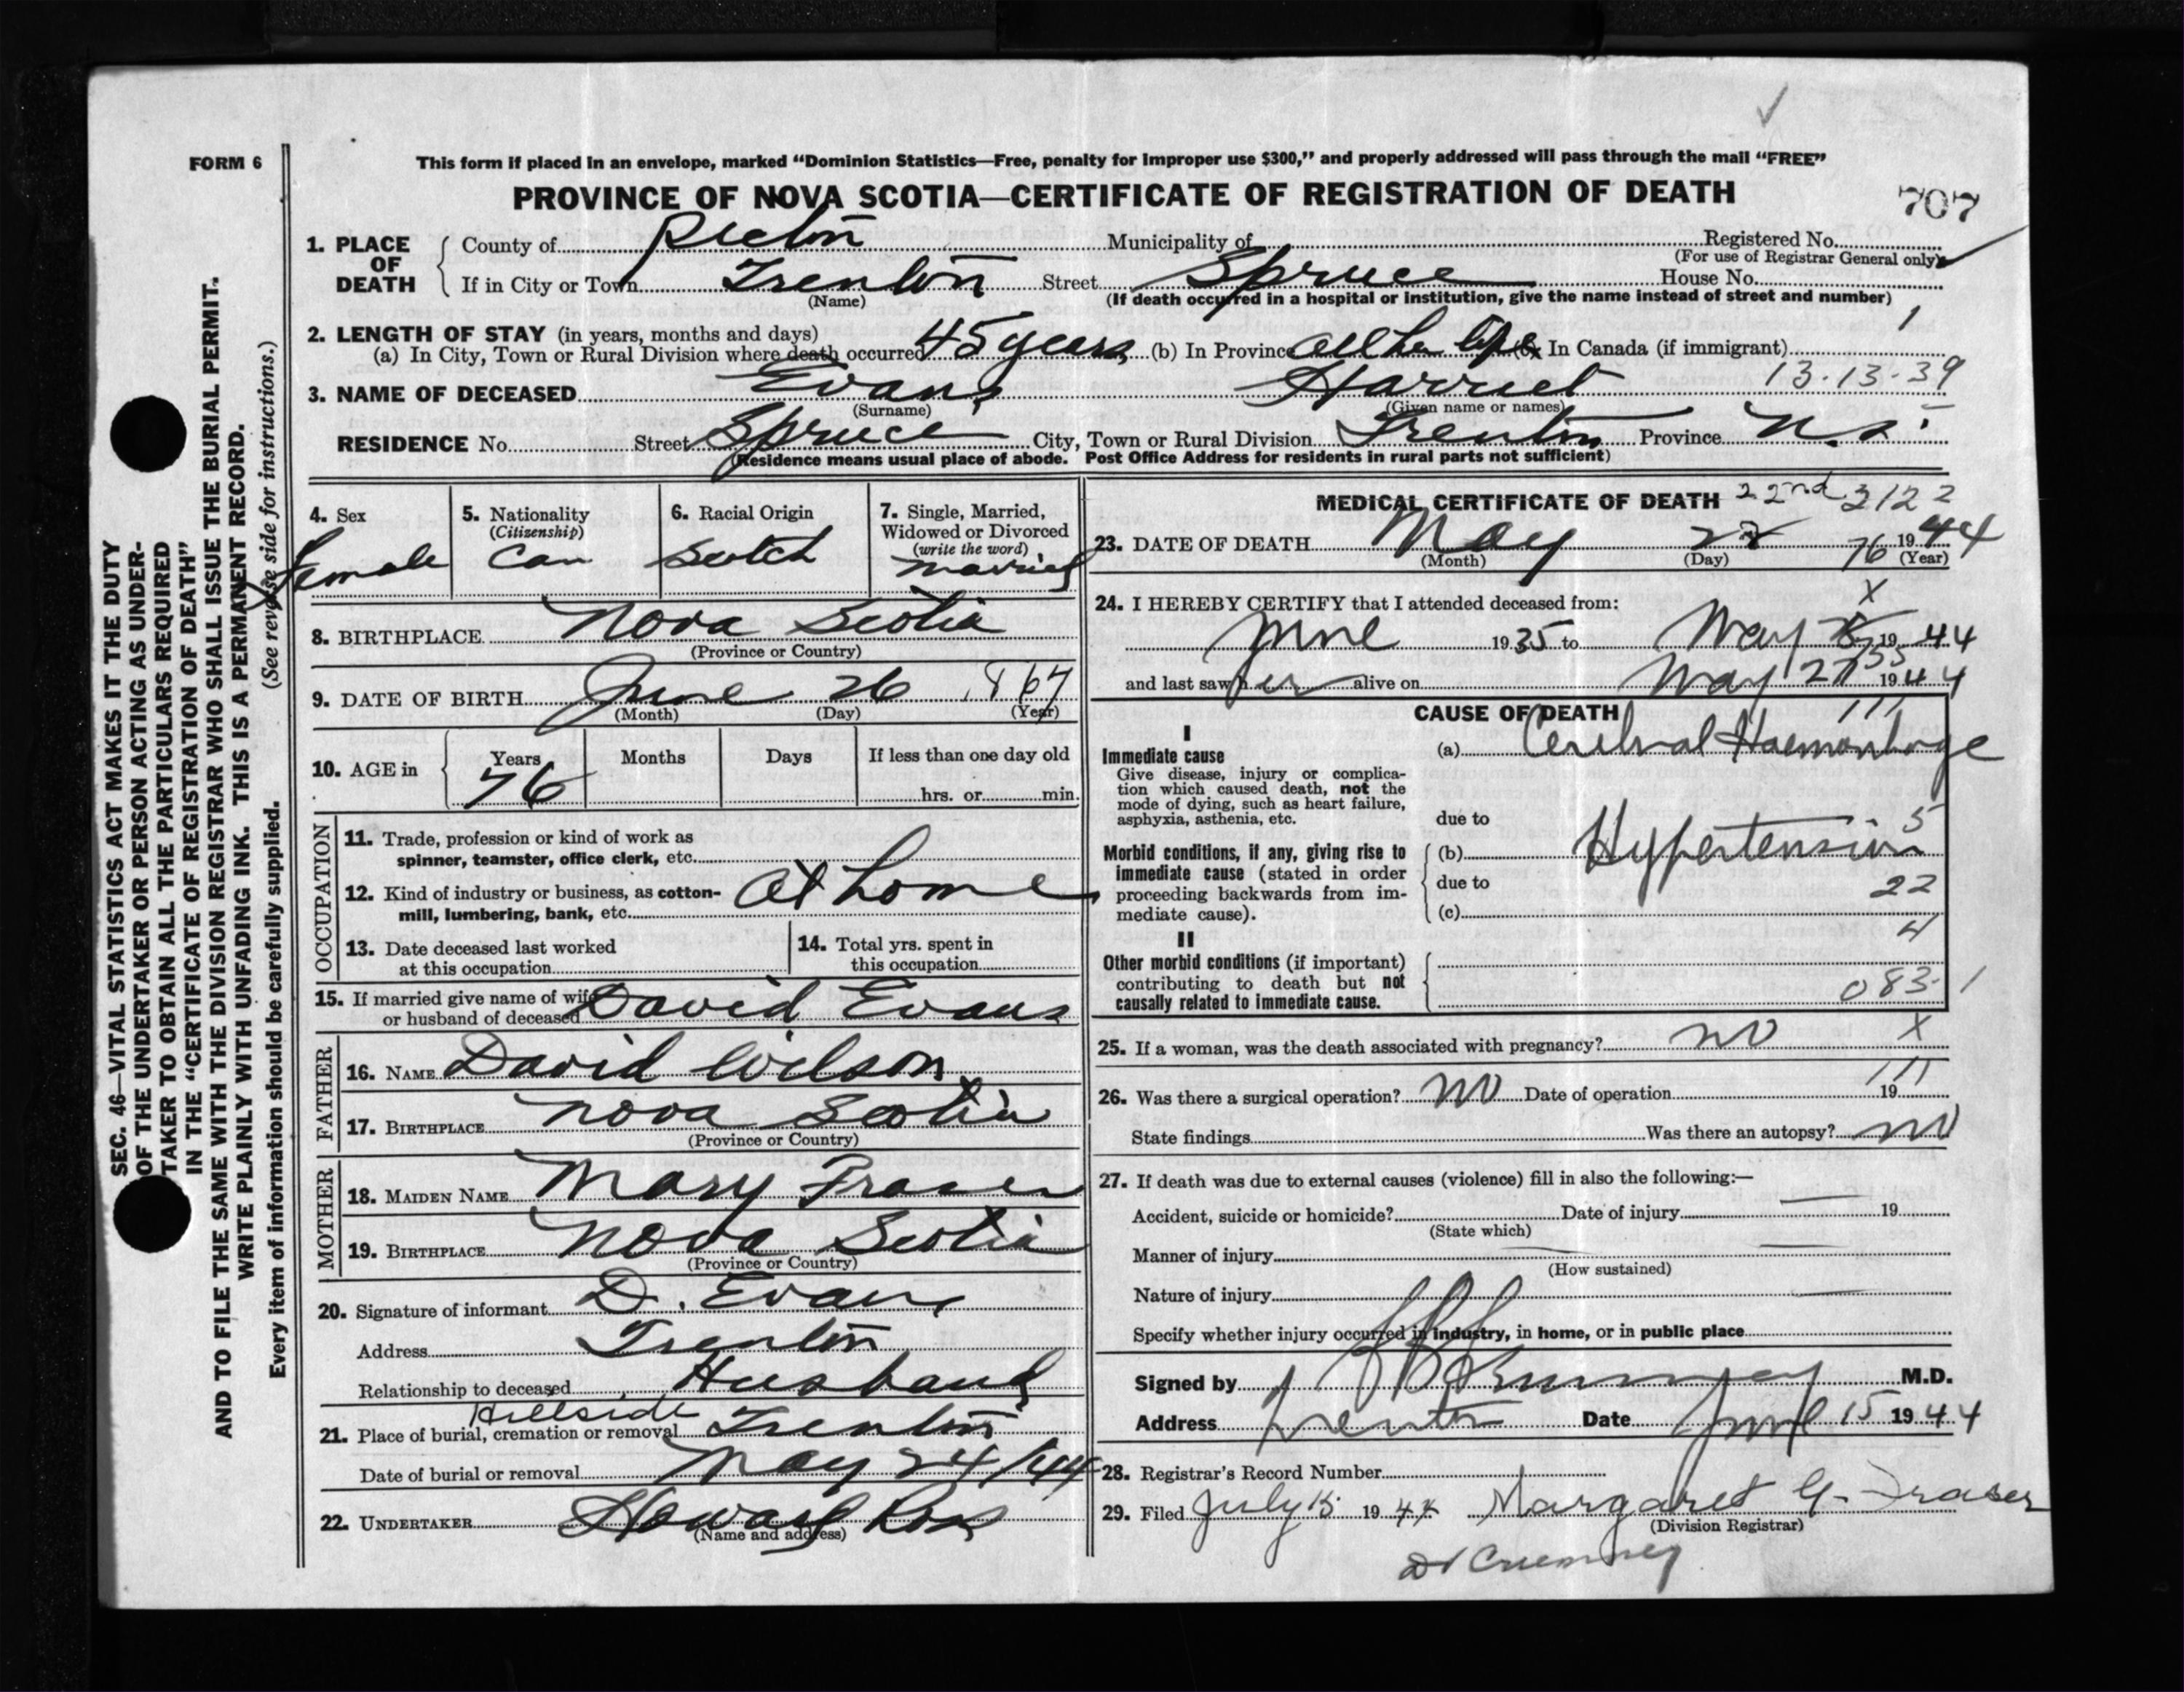 FORM 6
This form if placed in an envelope, marked “Dominion Statistics—Free, penalty for improper use $300,” and properly addressed will pass through the mail “FREE”
PROVINCE OF NOVA SCOTIA—CERTIFICATE OF REGISTRATION OF DEATH
707
SEC. 46—VITAL STATISTICS ACT MAKES IT THE DUTY
OF THE UNDERTAKER OR PERSON ACTING AS UNDER-
TAKER TO OBTAIN ALL THE PARTICULARS REQUIRED
IN THE “CERTIFICATE OF REGISTRATION OF DEATH”
AND TO FILE THE SAME WITH THE DIVISION REGISTRAR WHO SHALL ISSUE THE BURIAL PERMIT.
WRITE PLAINLY WITH UNFADING INK. THIS IS A PERMANENT RECORD.
(See reverse side for instructions.)
Every item of information should be carefully supplied.
1. PLACE OF DEATH
County of Pictou Municipality of Registered No.
(For use of Registrar General only)
If in City or Town Trenton Street Spruce House No.
(Name) (If death occurred in a hospital or institution, give the name instead of street and number)
1
2. LENGTH OF STAY (in years, months and days)
(a) In City, Town or Rural Division where death occurred 45 years (b) In Province all her life (c) In Canada (if immigrant)
13-13-39
3. NAME OF DECEASED Evans Harriet
(Surname) (Given name or names)
RESIDENCE No. Street Spruce City, Town or Rural Division Trenton Province N.S.
(Residence means usual place of abode. Post Office Address for residents in rural parts not sufficient)
4. Sex
Female
5. Nationality
(Citizenship)
Can
6. Racial Origin
Scotch
7. Single, Married,
Widowed or Divorced
(write the word)
married
8. BIRTHPLACE Nova Scotia
(Province or Country)
9. DATE OF BIRTH June 26 1867
(Month) (Day) (Year)
10. AGE in Years Months Days If less than one day old
76 hrs. or min.
OCCUPATION
11. Trade, profession or kind of work as
spinner, teamster, office clerk, etc.
12. Kind of industry or business, as cotton-
mill, lumbering, bank, etc. At home
13. Date deceased last worked
at this occupation
14. Total yrs. spent in
this occupation
15. If married give name of wife
or husband of deceased David Evans
FATHER
16. NAME David Wilson
17. BIRTHPLACE Nova Scotia
(Province or Country)
MOTHER
18. MAIDEN NAME Mary Fraser
19. BIRTHPLACE Nova Scotia
(Province or Country)
20. Signature of informant D. Evans
Address Trenton
Relationship to deceased Husband
Hillside
21. Place of burial, cremation or removal Trenton
Date of burial or removal May 24/44
22. UNDERTAKER Howard Ross
(Name and address)
MEDICAL CERTIFICATE OF DEATH 22nd 3122
23. DATE OF DEATH May 22 1944
(Month) (Day) 76 (Year)
X
24. I HEREBY CERTIFY that I attended deceased from:
June 1935 to May 1944
55
and last saw her alive on May 1944
CAUSE OF DEATH
111
I
Immediate cause
Give disease, injury or complica-
tion which caused death, not the
mode of dying, such as heart failure,
asphyxia, asthenia, etc.
(a) Cerebral Haemorrhage
due to
5
Morbid conditions, if any, giving rise to
immediate cause (stated in order
proceeding backwards from im-
mediate cause).
(b) Hypertension
due to
22
(c)
4
II
Other morbid conditions (if important)
contributing to death but not
causally related to immediate cause.
083-1
25. If a woman, was the death associated with pregnancy? no X
111
26. Was there a surgical operation? no Date of operation 19
State findings Was there an autopsy? no
27. If death was due to external causes (violence) fill in also the following:—
Accident, suicide or homicide? Date of injury 19
(State which)
Manner of injury
(How sustained)
Nature of injury
Specify whether injury occurred in industry, in home, or in public place
Signed by M.D.
Address Trenton Date June 15 1944
28. Registrar's Record Number
29. Filed July 15 1944 Margaret G. Fraser
(Division Registrar)